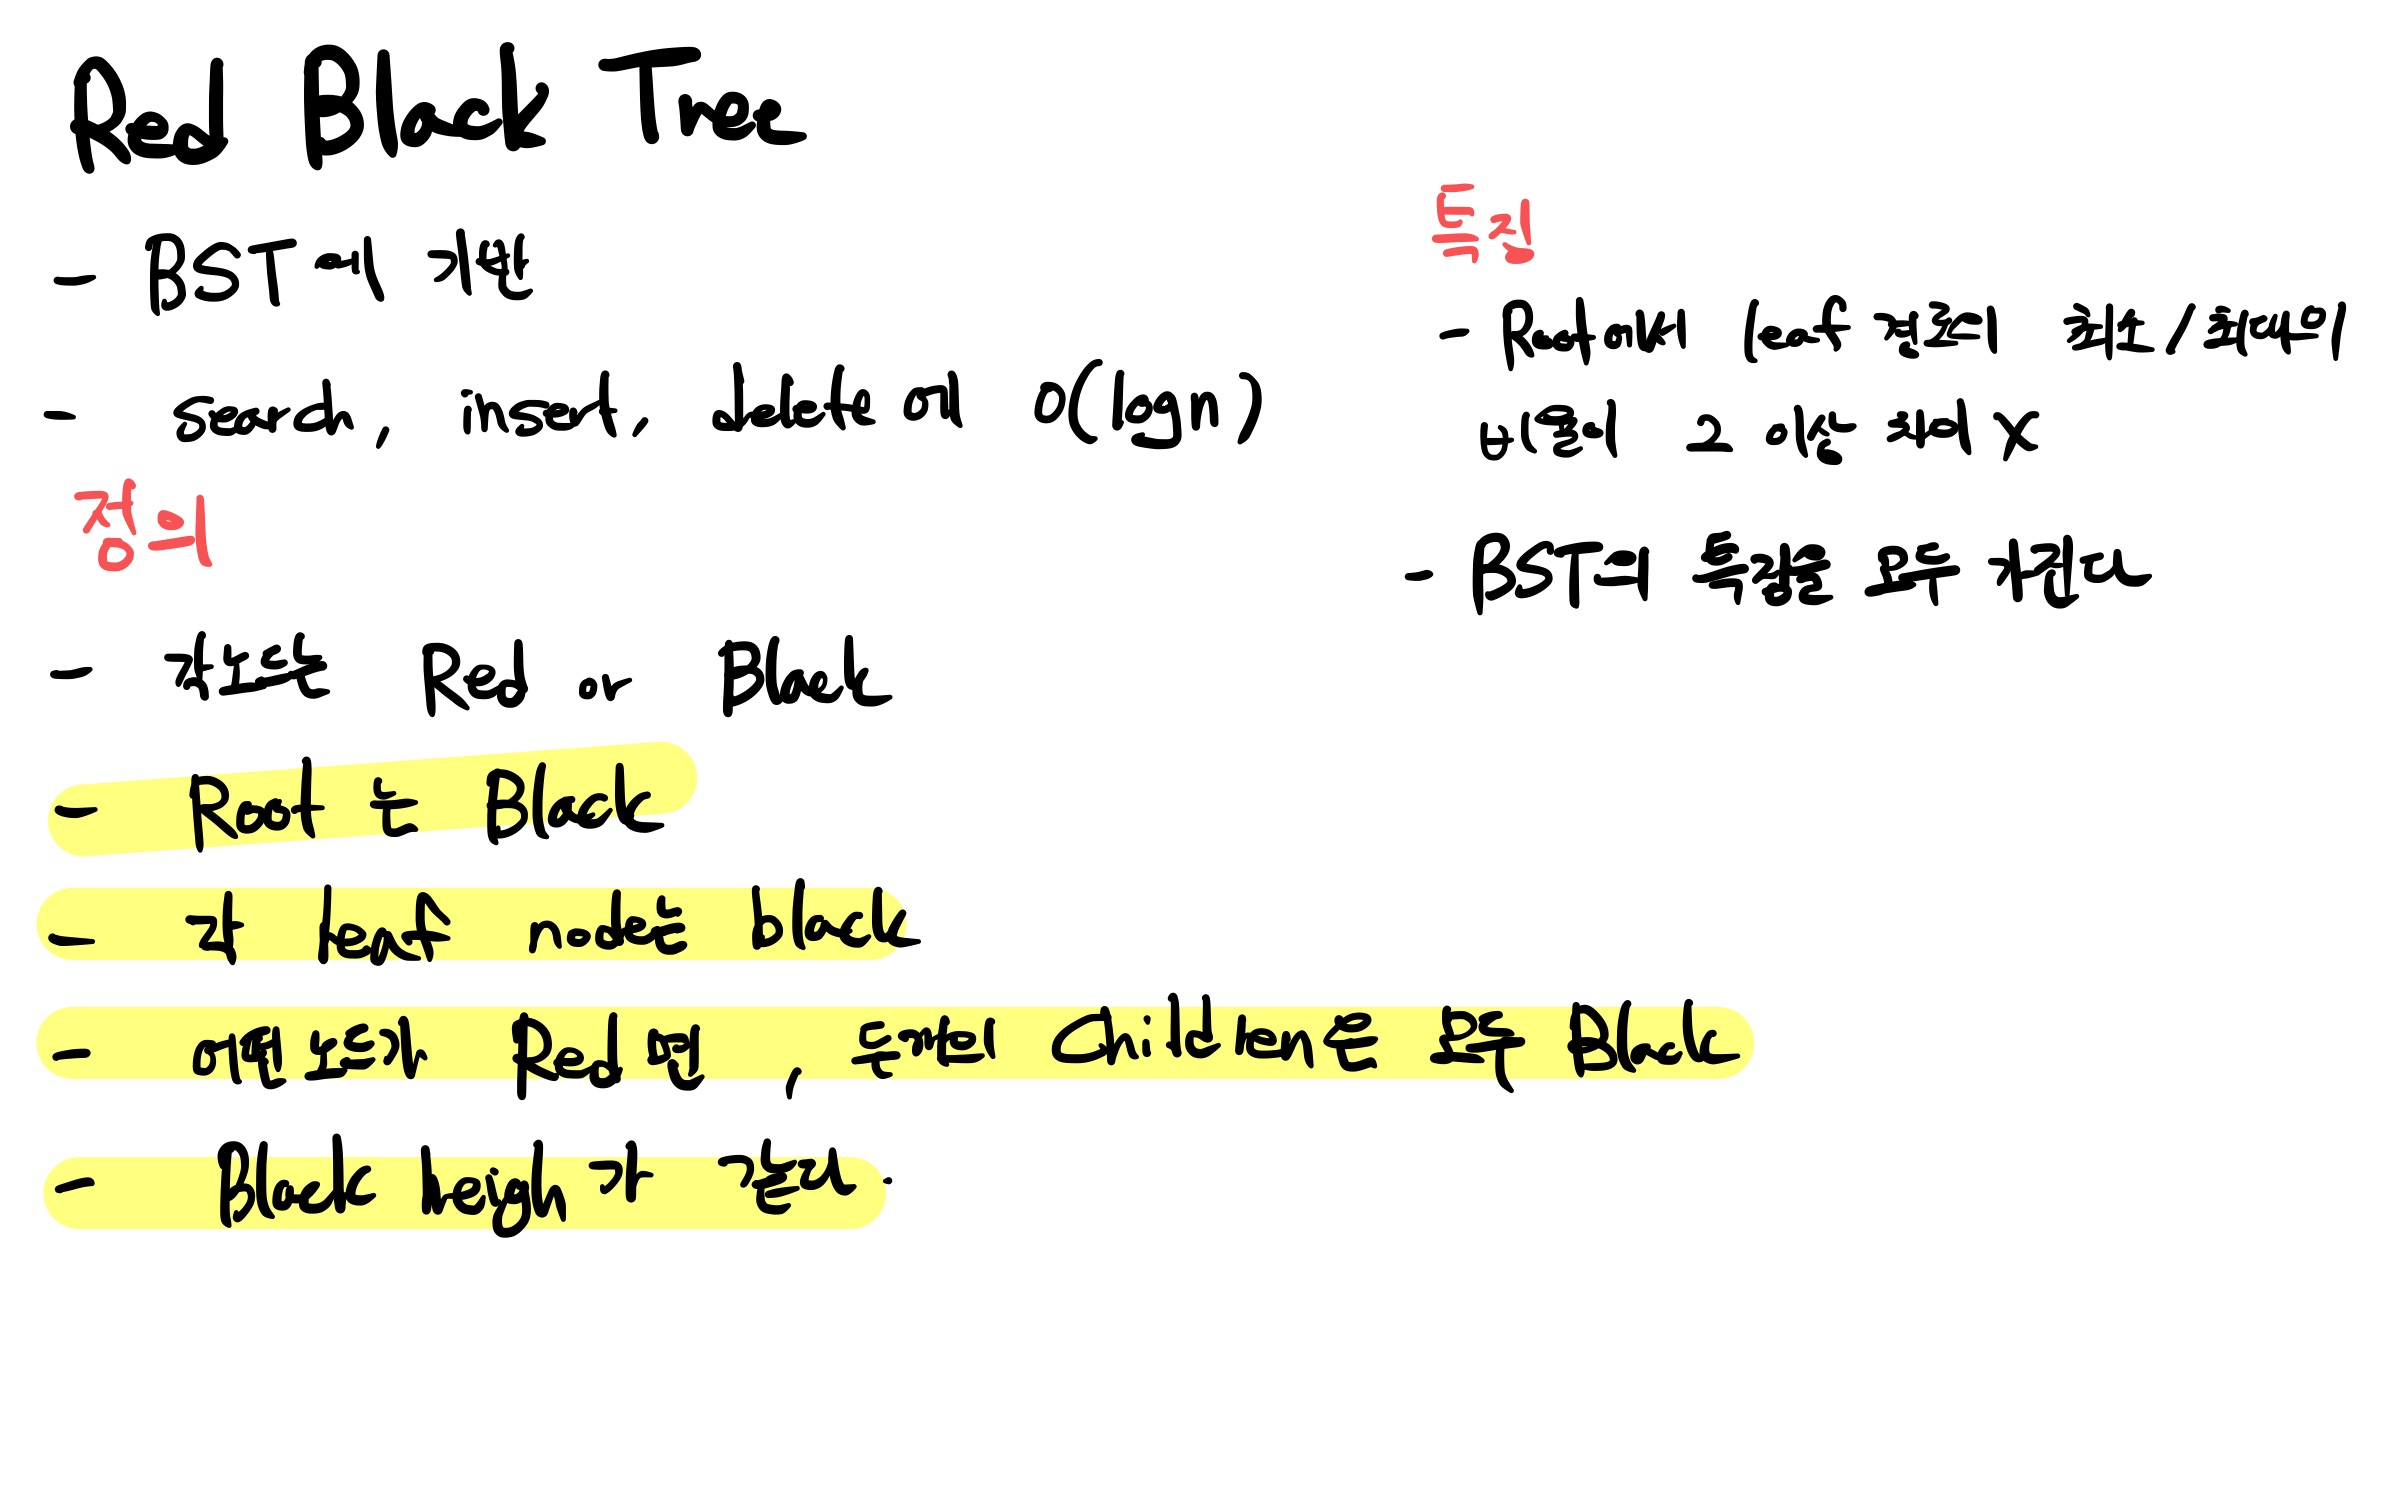 Red Black Tree
- BST에 기반
- search, insert, delete 에 O(logn)
정의
- 각 노드는 Red or Black
- Root 는 Black
- 각 leaf node는 black
- 어떤 노드가 Red 면, 노드의 Children은 모두 Black
- Black heigh 가 같다.
특징
- Root에서 leaf 경로의 최소/최대의
비율이 2 이상 차이 X
- BST의 특징을 모두 가진다